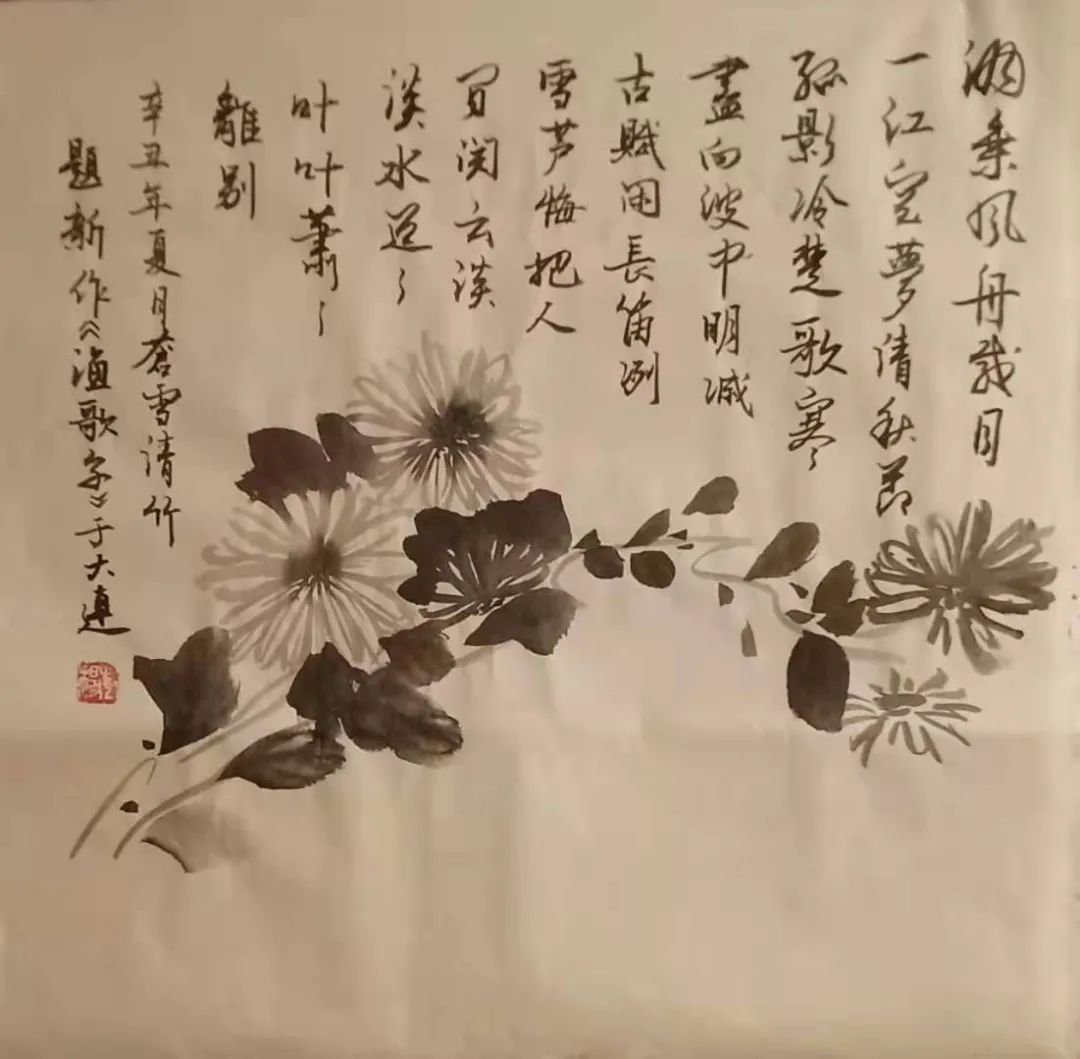 乘风舟载月
一江空夢清秋节
孤影冷楚歌寒々
盡向波中明滅
古賦闲長笛冽
雪芦悔把人
间阅云淡
淡水迢々
叶叶萧々
離别
辛丑年夏月蒼雪清竹
题新作《渔歌子》于大連